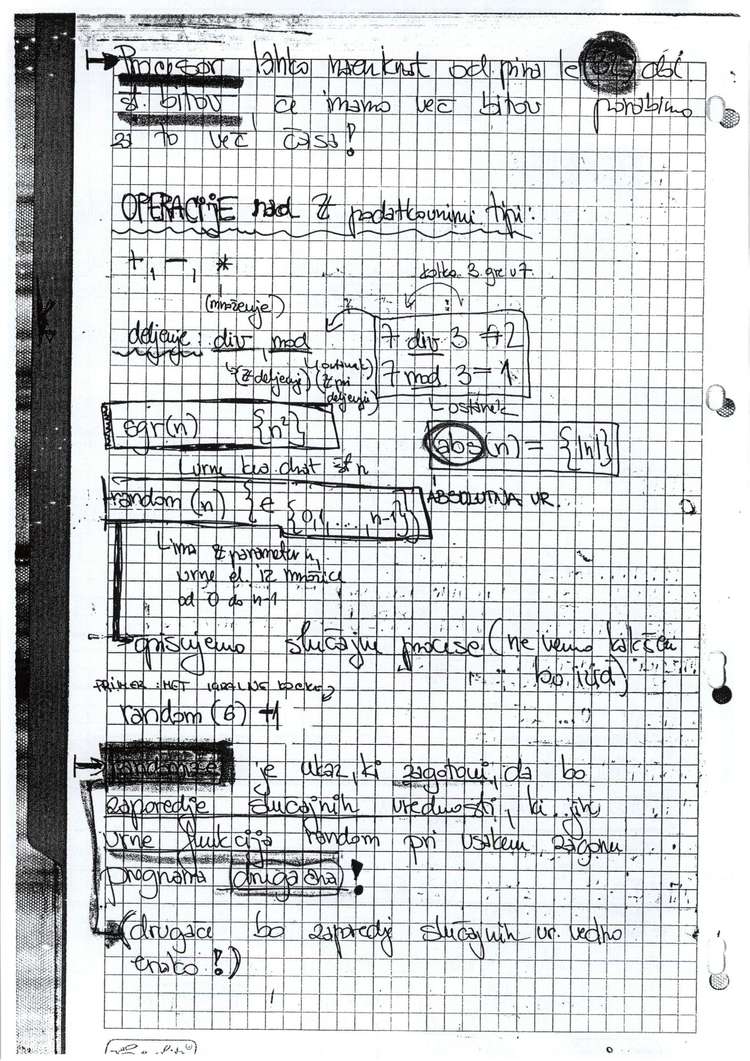 Processor lahko naenkrat od pira le
št. bitov, če imamo več bitov porabimo
za to več časa!
OPERACIJE nad Z podatkovnimi tipi:
+, -, *
(množenje)
kolko 3 gre v 7
deljenje: div, mod
7 div 3 = 2
7 mod 3 = 1
(Z deljenje) (ostanek Z pri deljenju)
ostanek
sqr(n) {n²}
abs(n) = {|n|}
vrne kvadrat št n
random (n) {∈ {0,1,...,n-1}}
ABSOLUTNA VR.
Ima Z parameter n,
vrne el. iz množice
od 0 do n-1
opisujemo slučajne procese (ne vemo kakšen
bo izid)
PRIMER: MET IGRALNE KOCKE
random (6) +1
Randomize je ukaz, ki zagotovi, da bo
zaporedje slučajnih vrednosti, ki jih
vrne funkcija random pri vsakem zagonu
programa drugačna!
(drugače bo zaporedje slučajnih vr. vedno
enako!)